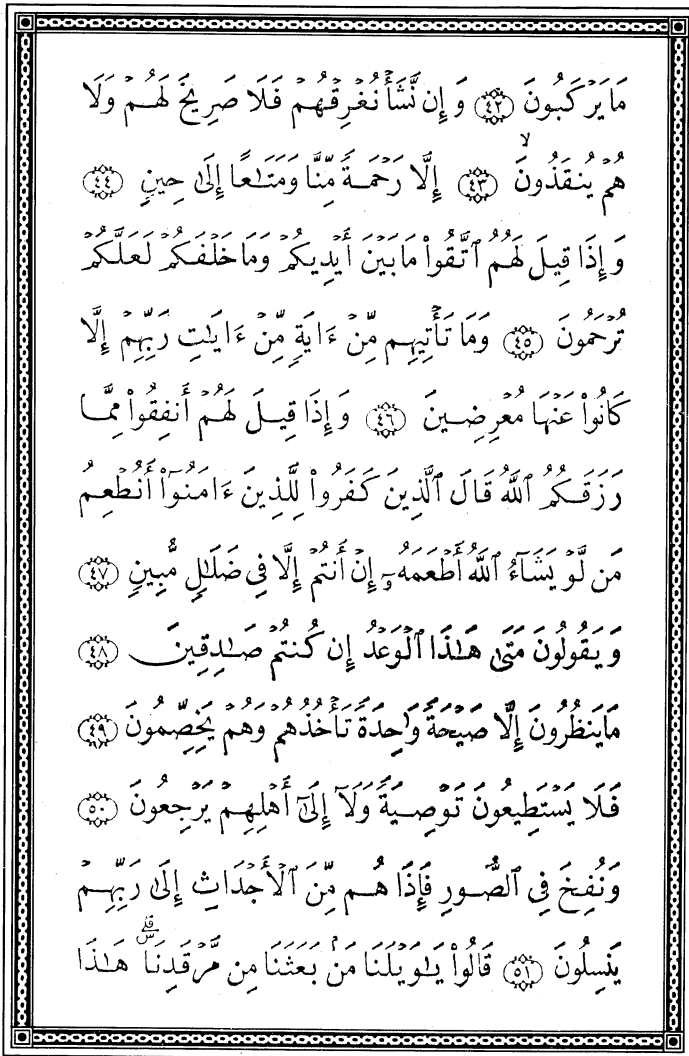 مَا يَرْكَبُونَ ﴿٤٢﴾ وَإِن نَّشَأْ نُغْرِقْهُمْ فَلَا صَرِيخَ لَهُمْ وَلَا
هُمْ يُنقَذُونَۙ ﴿٤٣﴾ إِلَّا رَحْمَةً مِّنَّا وَمَتَـٰعًا إِلَىٰ حِينٍ ﴿٤٤﴾
وَإِذَا قِيلَ لَهُمُ ٱتَّقُوا۟ مَا بَيْنَ أَيْدِيكُمْ وَمَا خَلْفَكُمْ لَعَلَّكُمْ
تُرْحَمُونَ ﴿٤٥﴾ وَمَا تَأْتِيهِم مِّنْ ءَايَةٍ مِّنْ ءَايَـٰتِ رَبِّهِمْ إِلَّا
كَانُوا۟ عَنْهَا مُعْرِضِينَ ﴿٤٦﴾ وَإِذَا قِيلَ لَهُمْ أَنفِقُوا۟ مِمَّا
رَزَقَكُمُ ٱللَّهُ قَالَ ٱلَّذِينَ كَفَرُوا۟ لِلَّذِينَ ءَامَنُوٓا۟ أَنُطْعِمُ
مَن لَّوْ يَشَآءُ ٱللَّهُ أَطْعَمَهُۥٓ إِنْ أَنتُمْ إِلَّا فِى ضَلَـٰلٍ مُّبِينٍ ﴿٤٧﴾
وَيَقُولُونَ مَتَىٰ هَـٰذَا ٱلْوَعْدُ إِن كُنتُمْ صَـٰدِقِينَ ﴿٤٨﴾
مَا يَنظُرُونَ إِلَّا صَيْحَةً وَٰحِدَةً تَأْخُذُهُمْ وَهُمْ يَخِصِّمُونَ ﴿٤٩﴾
فَلَا يَسْتَطِيعُونَ تَوْصِيَةً وَلَآ إِلَىٰٓ أَهْلِهِمْ يَرْجِعُونَ ﴿٥٠﴾
وَنُفِخَ فِى ٱلصُّورِ فَإِذَا هُم مِّنَ ٱلْأَجْدَاثِ إِلَىٰ رَبِّهِمْ
يَنسِلُونَ ﴿٥١﴾ قَالُوا۟ يَـٰوَيْلَنَا مَنۢ بَعَثَنَا مِن مَّرْقَدِنَاۜۗ هَـٰذَا